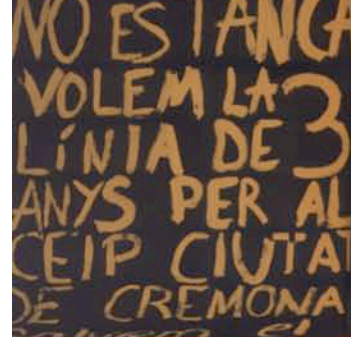 NO ES TANCA
VOLEM LA 3
LÍNIA DE
ANYS PER AL
CEIP CIUTAT
DE CREMONA